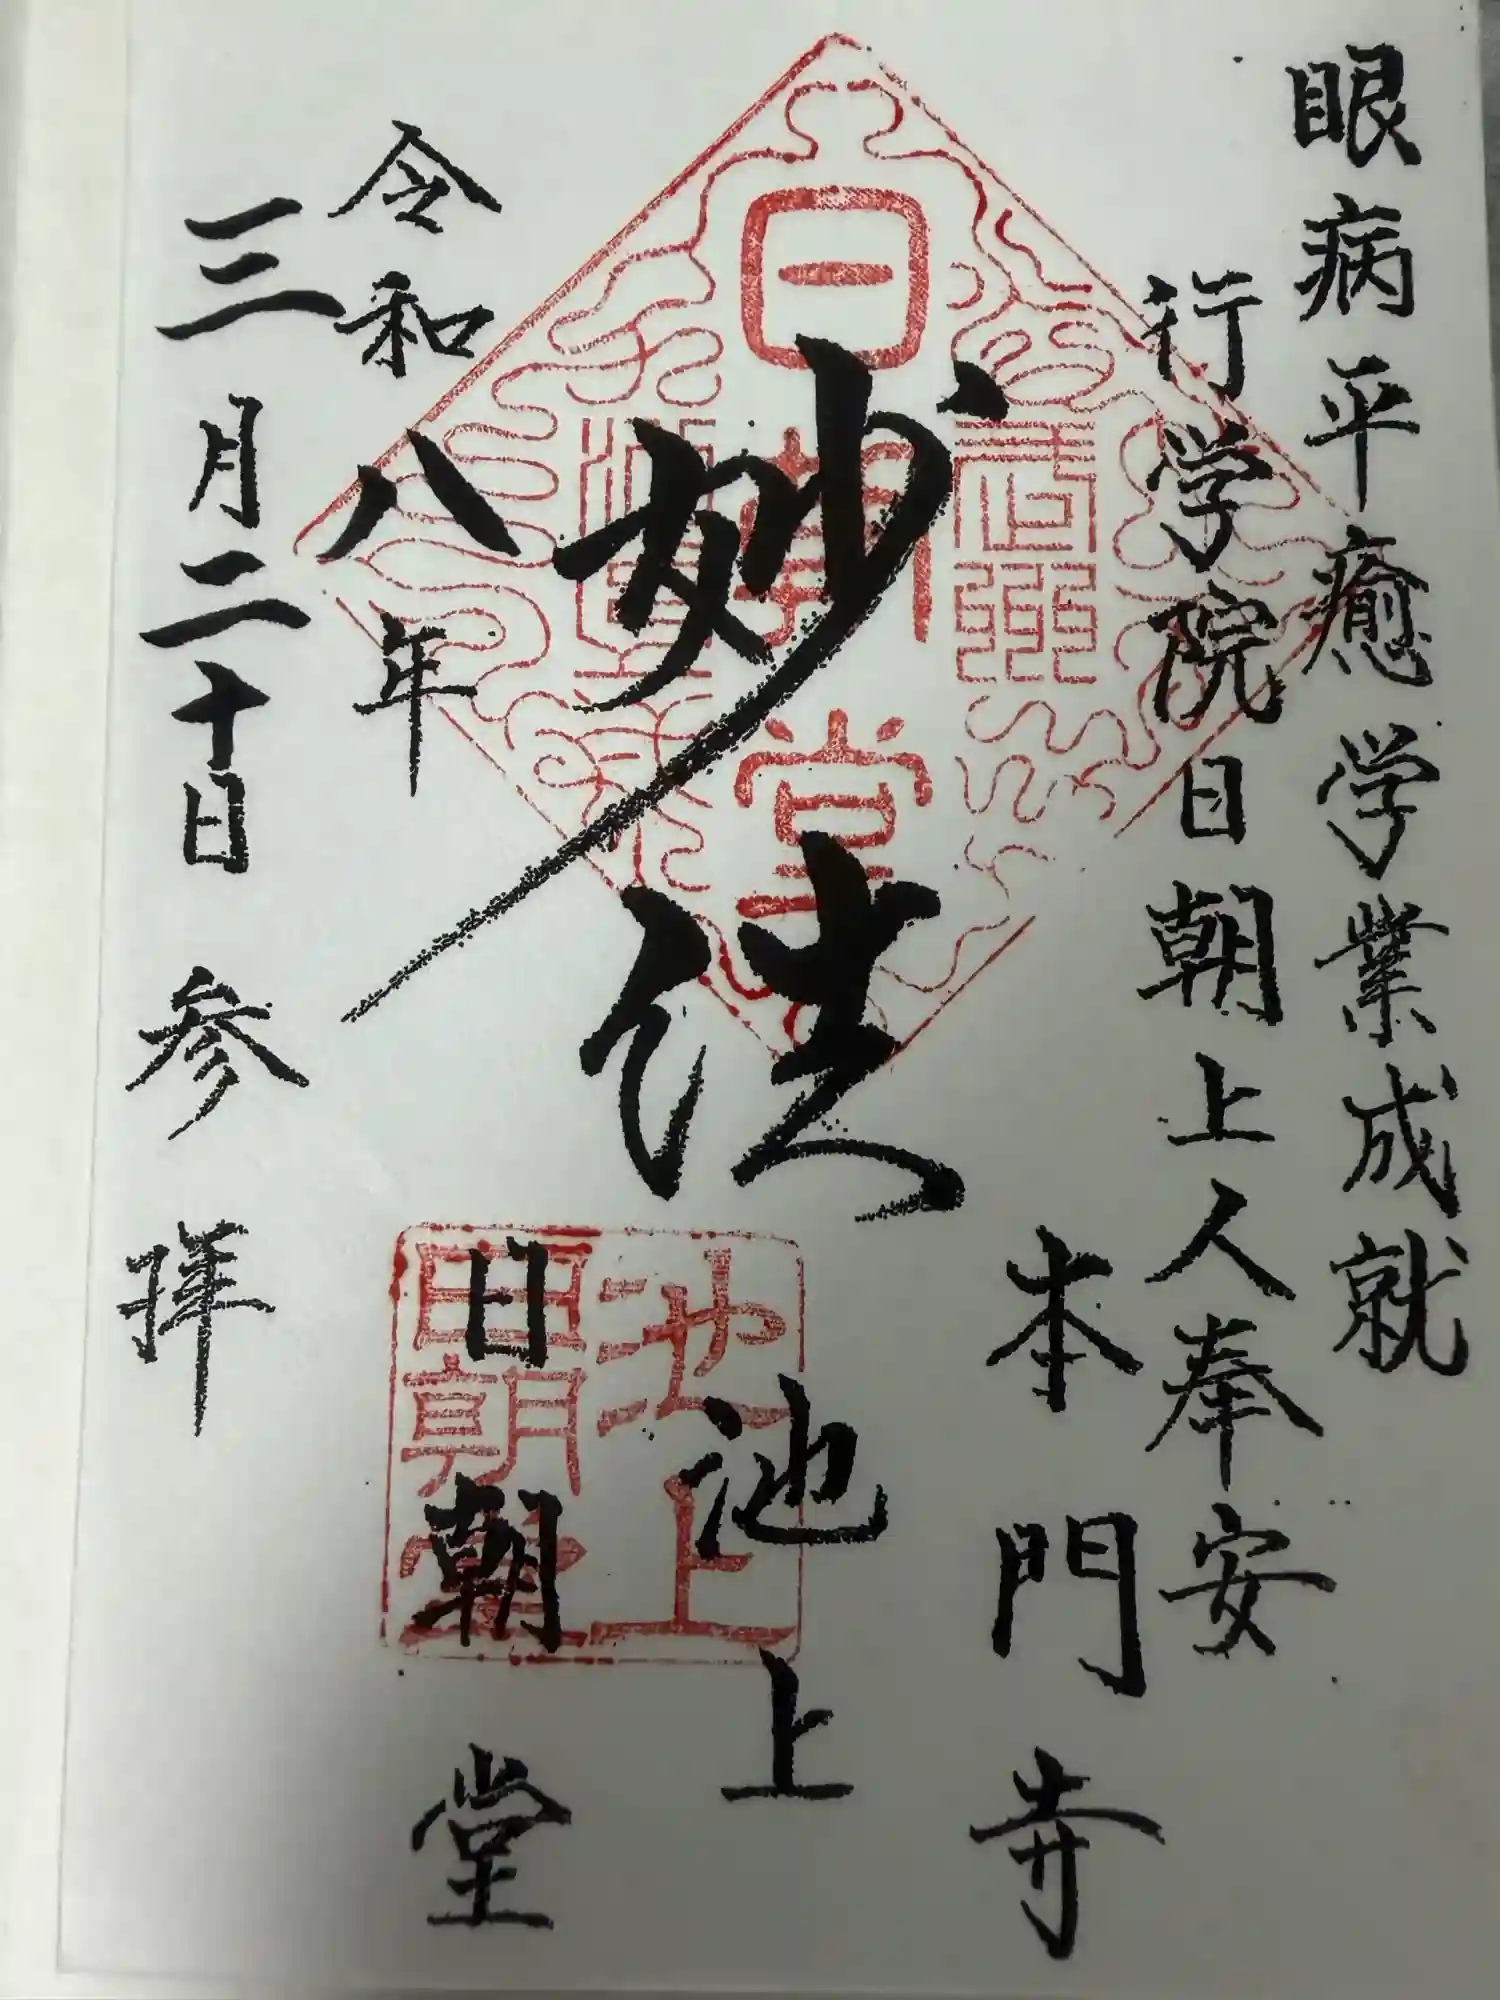 眼病平癒学業成就
行学院日朝上人奉安
本門寺
妙法
池上
日朝堂
令和八年
三月二十日 参拝
日朝堂
池上
日朝堂